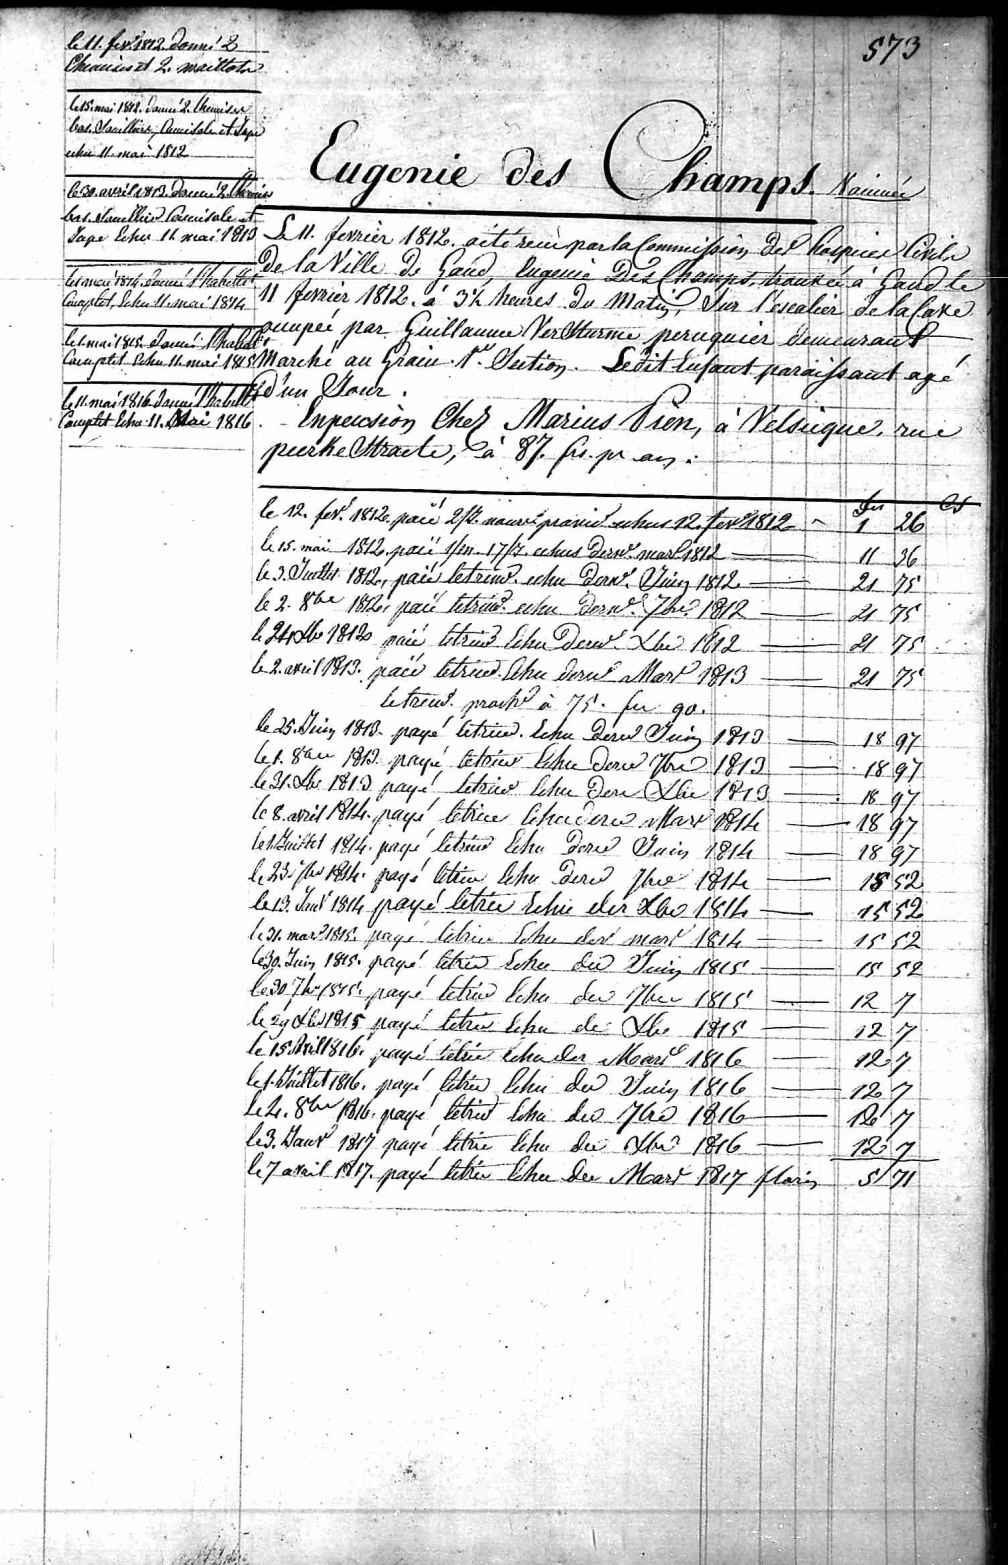 573
le 11. fevr 1812. donné 2
Chemises et 2. maillots
le 15. mai 1812. donné 2. Chemises
bas. Camisole et Jupe
echu 11. mai 1812
le 30. avril 1813. donné 2. Chemises
bas. Camisole et
Jupe Echu 11. mai 1813
le 1 mai 1814. donné l'habillt
Complet, Echu 11. mai 1814
le 1 mai 1815. donné l'habillt
Complet Echu 11. mai 1815
le 11. mai 1816 donné l'habillt
Complet Echu 11. Mai 1816
Eugenie des Champs.
Le 11. fevrier 1812. a été recu par la Commission des hospices Civils
De la Ville de Gand, Eugenie Des Champs, trouvée à Gand le
11 fevrier 1812. à 3½ heures du Matin, Sur l'escalier de la Cave
occupée par Guillaume Verstturme peruquier demeurant
Marché au Grain 1re Section. Ledit Enfant paraissant agé
d'un Jour.
En pension Chez Marius Pien, à Velsique, rue
à 87. frs. pr an.
frs cs
le 12. fevr. 1812. paié echus 12. fevr 1812 1 26
le 15. mai 1812. paié 1/m. 17/7. echus dernr. mars 1812 11 36
le 3. Juillt. 1812, paié le trimr. echu dernr. Juin 1812 21 75
le 2. 8bre 1812, paié le trimr. echu dernr. 7bre 1812 21 75
le 24 Xbre 1812 paié le trimr Echu Dernr Xbre 1812 21 75
le 2. avril 1813. paié le trimr. Echu dernr Mars 1813 21 75
le trimr. prochn à 75. fr 90.
le 25. Juin 1813. payé le trimr. Echu Dernr Juin 1813 18 97
le 1. 8bre 1813. payé le trimr Echu dernr 7bre 1813 18 97
le 31. Xbre 1813 payé le trimr Echu dern Xbre 1813 18 97
le 8. avril 1814. payé le trimr Echu dernr Mars 1814 18 97
le 1 Juillet 1814. payé le trimr Echu dernr Juin 1814 18 97
le 23. 7bre 1814. payé le trimr Echu dernr 7bre 1814 15 52
le 13. Janr 1814 payé le trimr Echu der Xbre 1814 15 52
le 31. mars 1815. payé le trimr Echu der mars 1814 15 52
le 30. Juin 1815. payé le trimr Echu der Juin 1815 15 52
le 30 7bre 1815. payé le trimr Echu der 7bre 1815 12 7
le 29 Xbre 1815 payé le trimr Echu de Xbre 1815 12 7
le 15 Avril 1816. payé le trimr Echu der Mars 1816 12 7
le 1. Juillet 1816. payé le trimr Echu der Juin 1816 12 7
le 4. 8bre 1816. payé le trimr Echu der 7bre 1816 12 7
le 3. Janvr 1817 payé le trimr Echu der Xbre 1816 12 7
le 7 avril 1817. payé le trimr Echu der Mars 1817 florins 5 71